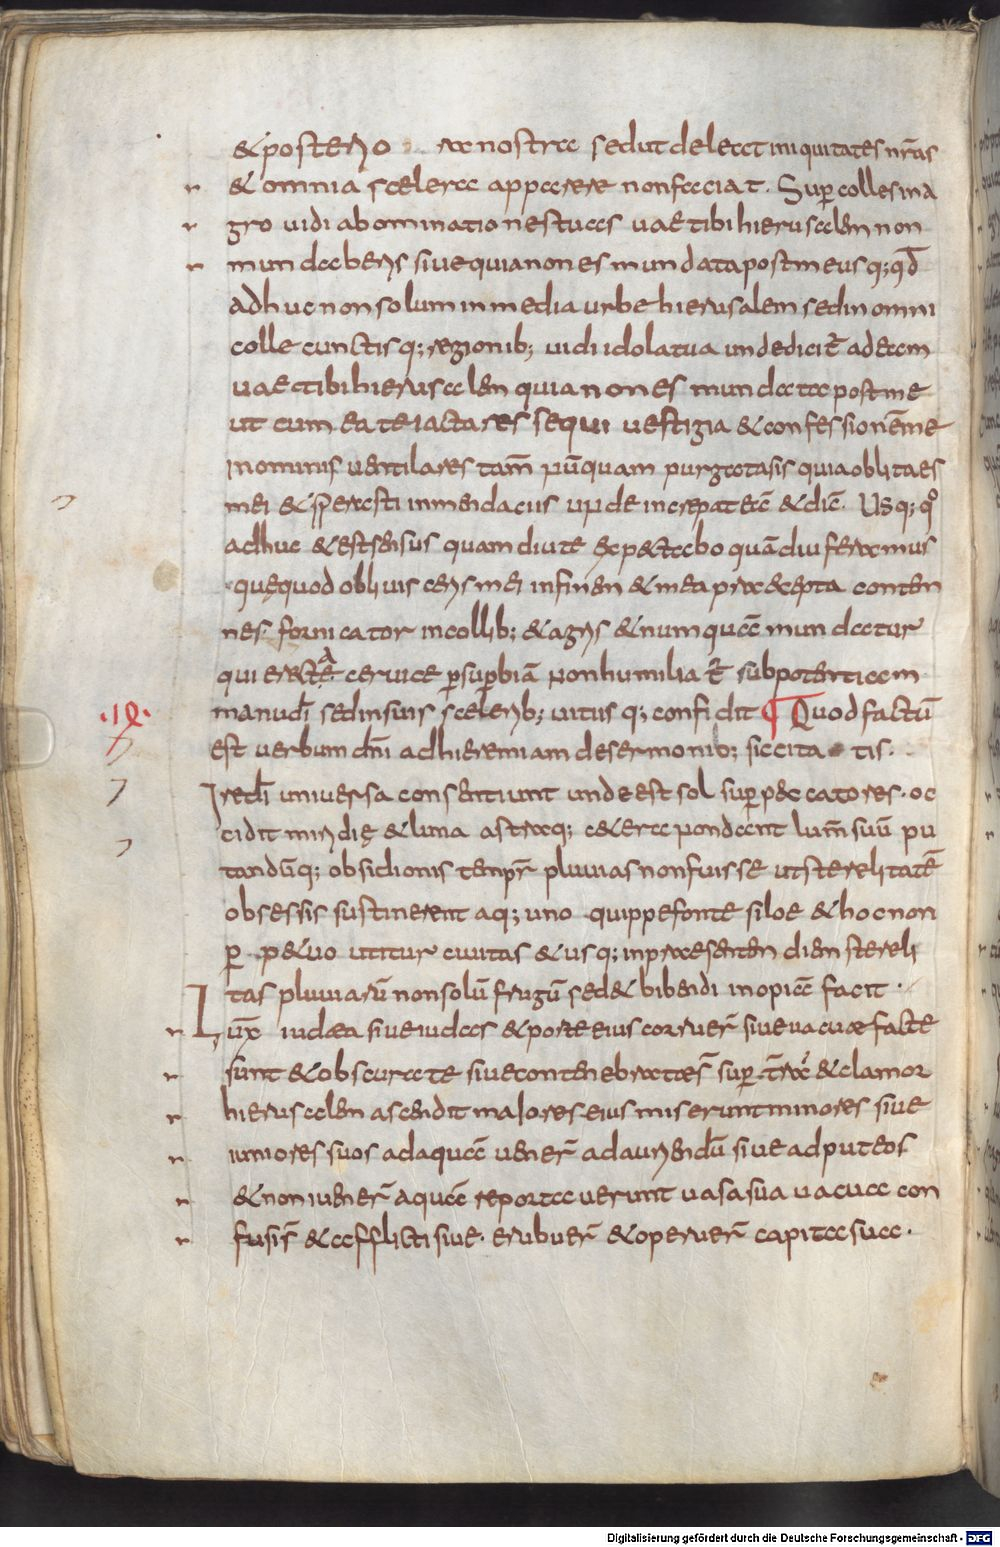 & posteriora nostra sed ut deleat iniquitates nr̄as
& omnia scelera apparere non faciat. Sup̱ colles in a
gro vidi abominationes tuas uae tibi hierusalem non
mundaberis siue quia non es mundata post me usq; qd̄
adhuc non solum in media urbe hierusalem sed in omni
colle cunctisq; regionib; uidi idolatua unde dicit̄ ad eam
uae tibi hierusalem quia non es mundata post me
ut cum ea te iactares sequi uestigia & confessionē me
i nominis uentilares tam̄ nūquam purgata sis quia oblita es
mei & sperasti in mendaciis unde increpat eā & dic̄. Usq; qͦ
adhuc & est sensus quam diu te expectabo quādiu feramus
quę quod obliuisceris mei in finem & mea praecepta contem
nes. fornicator in collib; & agris & numquā mundatur
qui erecta ceruice p̱ sup̱biā non humiliat̄ sub potentiam
manū dī sed in suis sclerib; uitiisq; confidit Quod factū
·IX·
est uerbum dn̄i ad hieremiam de sermonib; siccitatis.
Ire dī uniuersa consentiunt unde est sol sup̱ peccatores. oc
cidit meridię & luna astraq; caetera non dant lum̄ suū pu
tandūq; obsidionis tempr̄ pluuias non fuisse ut sterelitatē
obsessis sustinerent aq; uno quippe fonte siloe & hoc non
p̱p&uo utitur ciuitas & usq; in praesentem diem stereli
tas pluuiarū non solū frugū sed & bibendi inopiā facit.
Lux̄ iudaea siue iudas & porte eius corruer̄ siue uacuae facte
sunt & obscurate siue contenebratae s̄ sup̱ t̄ra & clamor
hierusalem ascendit maiores eius miserunt minores siue
iuniores suos ad aquā uener̄ ad auriendū siue ad puteos
& non iuener̄ aquā reportauerunt uasa sua uacua con
fusi s̄ & afflicti siue. erubuer̄ & operuer̄ capita sua.
Digitalisierung gefördert durch die Deutsche Forschungsgemeinschaft - DFG